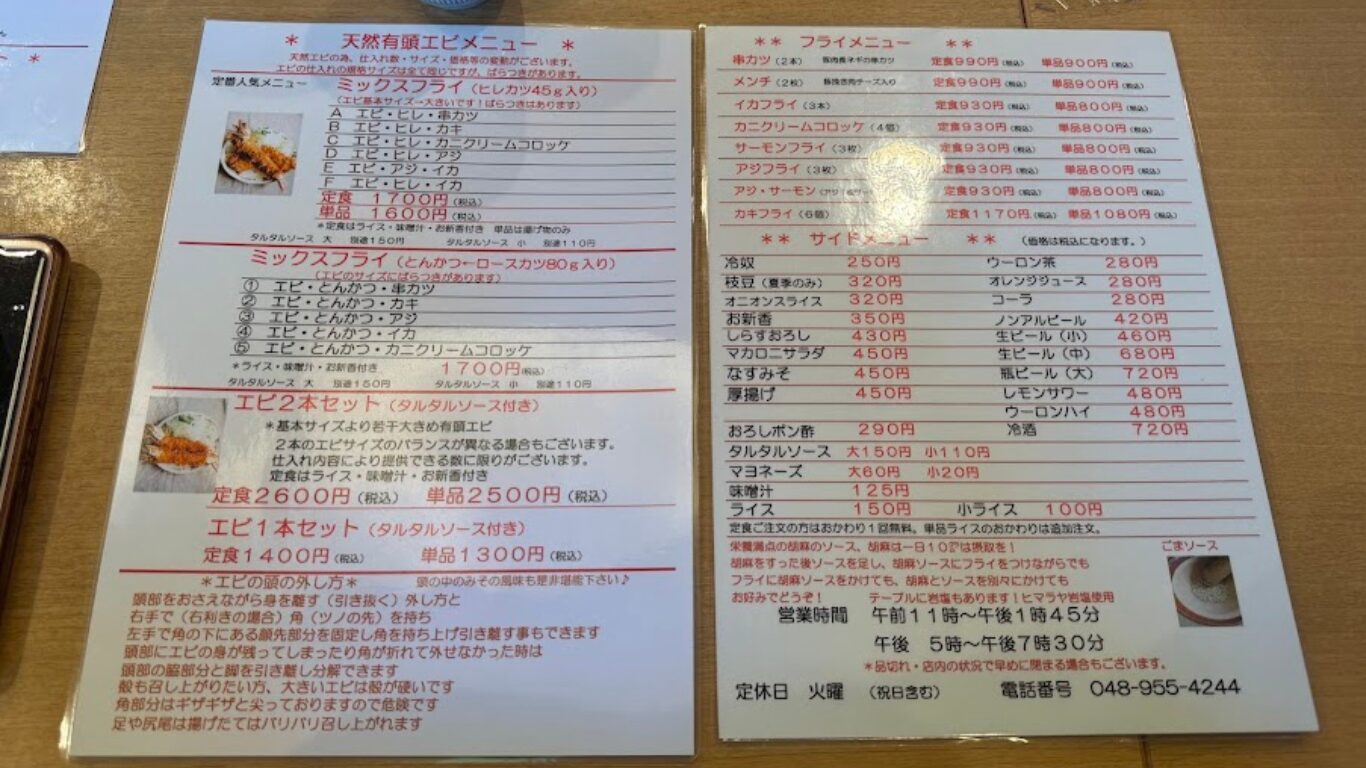 ＊ 天然有頭エビメニュー ＊
天然エビの為、仕入れ数・サイズ・価格等の変動がございます。
エビの仕入れの規格サイズは全て同じですが、ばらつきがあります。
定番人気メニュー ミックスフライ（ヒレカツ45ｇ入り）
（エビ基本サイズ→大きいです！ばらつきはあります）
A エビ・ヒレ・串カツ
B エビ・ヒレ・カキ
C エビ・ヒレ・カニクリームコロッケ
D エビ・ヒレ・アジ
E エビ・アジ・イカ
F エビ・ヒレ・イカ
定食 １７００円（税込）
単品 １６００円（税込）
＊定食はライス・味噌汁・お新香付き 単品は揚げ物のみ
タルタルソース 大 別途150円 タルタルソース 小 別途110円
ミックスフライ（とんかつ←ロースカツ80ｇ入り）
（エビのサイズにばらつきがあります）
① エビ・とんかつ・串カツ
② エビ・とんかつ・カキ
③ エビ・とんかつ・アジ
④ エビ・とんかつ・イカ
⑤ エビ・とんかつ・カニクリームコロッケ
＊ライス・味噌汁・お新香付き １７００円（税込）
タルタルソース 大 別途150円 タルタルソース 小 別途110円
エビ２本セット（タルタルソース付き）
＊基本サイズより若干大きめ有頭エビ
２本のエビサイズのバランスが異なる場合もございます。
仕入れ内容により提供できる数に限りがございます。
定食はライス・味噌汁・お新香付き
定食２６００円（税込） 単品２５００円（税込）
エビ１本セット（タルタルソース付き）
定食１４００円（税込） 単品１３００円（税込）
＊エビの頭の外し方＊ 頭の中のみその風味も是非堪能下さい♪
頭部をおさえながら身を離す（引き抜く）外し方と
右手で（右利きの場合）角（ツノの先）を持ち
左手で角の下にある顔先部分を固定し角を持ち上げ引き離す事もできます
頭部にエビの身が残ってしまったり角が折れて外せなかった時は
頭部の脇部分と脚を引き離し分解できます
殻も召し上がりたい方、大きいエビは殻が硬いです
角部分はギザギザと尖っておりますので危険です
足や尻尾は揚げたてはバリバリ召し上がれます
＊＊ フライメニュー ＊＊
串カツ（２本） 豚肉長ネギの串カツ 定食９９０円（税込） 単品９００円（税込）
メンチ（２枚） 豚挽き肉チーズ入り 定食９９０円（税込） 単品９００円（税込）
イカフライ（３本） 定食９３０円（税込） 単品８００円（税込）
カニクリームコロッケ（４個） 定食９３０円（税込） 単品８００円（税込）
サーモンフライ（３枚） 定食９３０円（税込） 単品８００円（税込）
アジフライ（３枚） 定食９３０円（税込） 単品８００円（税込）
アジ・サーモン 定食９３０円（税込） 単品８００円（税込）
カキフライ（６個） 定食１１７０円（税込） 単品１０８０円（税込）
＊＊ サイドメニュー ＊＊ （価格は税込になります。）
冷奴 ２５０円 ウーロン茶 ２８０円
枝豆（夏季のみ） ３２０円 オレンジジュース ２８０円
オニオンスライス ３２０円 コーラ ２８０円
お新香 ３５０円 ノンアルビール ４２０円
しらすおろし ４３０円 生ビール（小） ４６０円
マカロニサラダ ４５０円 生ビール（中） ６８０円
なすみそ ４５０円 瓶ビール（大） ７２０円
厚揚げ ４５０円 レモンサワー ４８０円
ウーロンハイ ４８０円
おろしポン酢 ２９０円 冷酒 ７２０円
タルタルソース 大１５０円 小１１０円
マヨネーズ 大６０円 小２０円
味噌汁 １２５円
ライス １５０円 小ライス １００円
定食ご注文の方はおかわり１回無料。単品ライスのおかわりは追加注文。
栄養満点の胡麻のソース、胡麻は一日１０㌘は摂取を！ ごまソース
胡麻をすった後ソースを足し、胡麻ソースにフライをつけながらでも
フライに胡麻ソースをかけても、胡麻とソースを別々にかけても
お好みでどうぞ！ テーブルに岩塩もあります！ヒマラヤ岩塩使用
営業時間 午前１１時～午後１時４５分
午後 ５時～午後７時３０分
＊品切れ・店内の状況で早めに閉まる場合もございます。
定休日 火曜 （祝日含む） 電話番号 048-955-4244